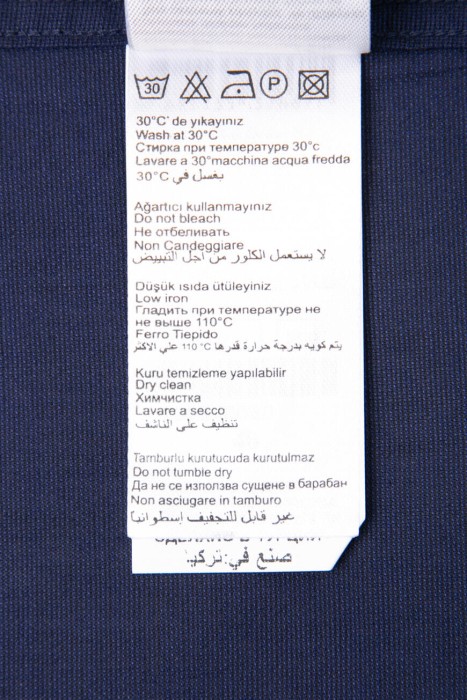 30
P
30°C' de yıkayınız
Wash at 30°C
Стирка при температуре 30°с
Lavare a 30°macchina acqua fredda
يغسل في 30°C
Ağartıcı kullanmayınız
Do not bleach
Не отбеливать
Non Candeggiare
لا يستعمل الكلور من أجل التبييض
Düşük ısıda ütüleyiniz
Low iron
Гладить при температуре не
не выше 110°C
Ferro Tiepido
يتم كويه بدرجة حرارة قدرها 110°C علي الاكثر
Kuru temizleme yapılabilir
Dry clean
Химчистка
Lavare a secco
تنظيف على الناشف
Tamburlu kurutucuda kurutulmaz
Do not tumble dry
Да не се използва сущене в барабан
Non asciugare in tamburo
غير قابل للتجفيف اسطوانيا
صنع في:تركيا